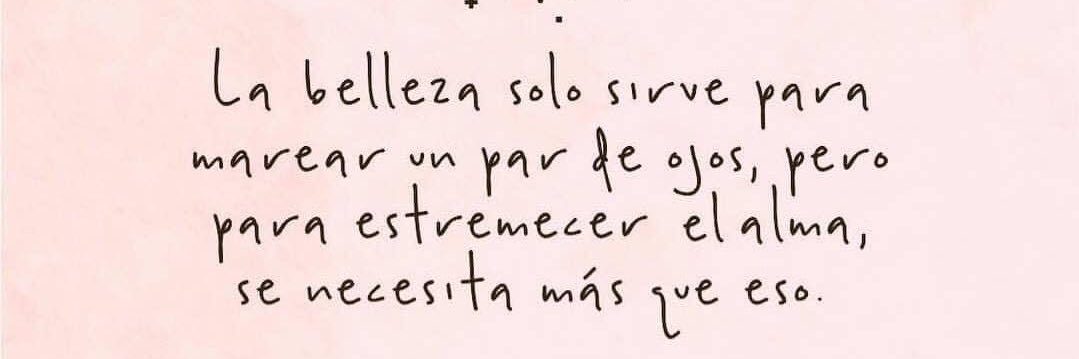 La belleza solo sirve para
marear un par de ojos, pero
para estremecer el alma,
se necesita más que eso.